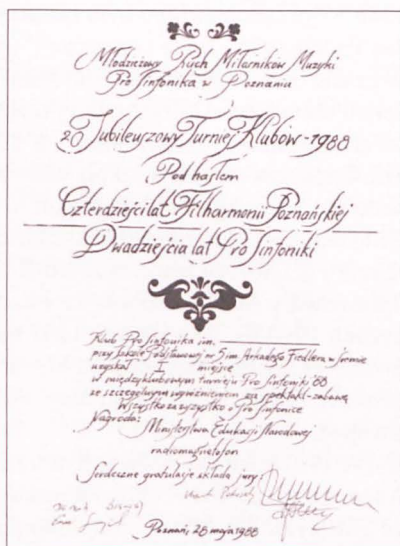 Młodzieżowy Ruch Miłośników Muzyki
Pro Sinfonika w Poznaniu
20 Jubileuszowy Turniej Klubów - 1988
Pod hasłem
Czterdzieści lat Filharmonii Poznańskiej
Dwadzieścia lat Pro Sinfoniki
Klub Pro Sinfonika im.
przy Szkole Podstawowej nr 5 im Arkadego Fiedlera w Śremie
uzyskał I miejsce
w międzyklubowym turnieju Pro Sinfoniki '88
ze szczególnym wyróżnieniem za spektakl-zabawę
Wszystko za wszystko o Pro Sinfonice
Nagroda:
Ministerstwa Edukacji Narodowej
radiomagnetofon
Serdeczne gratulacje składa jury:
Poznań, 28 maja 1988